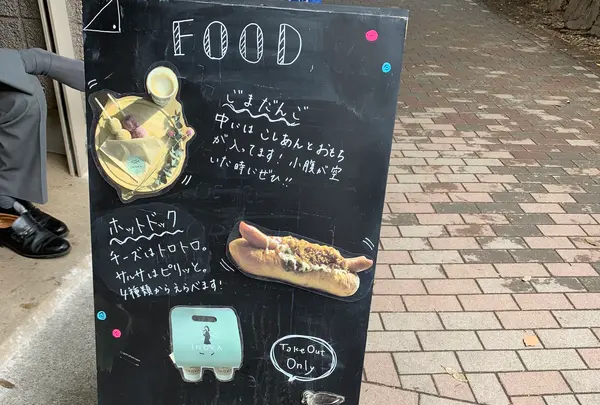 FOOD
ごまだんご
中にはこしあんとおもち
が入ってます!小腹が空
いた時にぜひ!!
ホットドック
チーズはトロトロ。
サルサはピリッと。
4種類からえらべます!
Take Out
Only